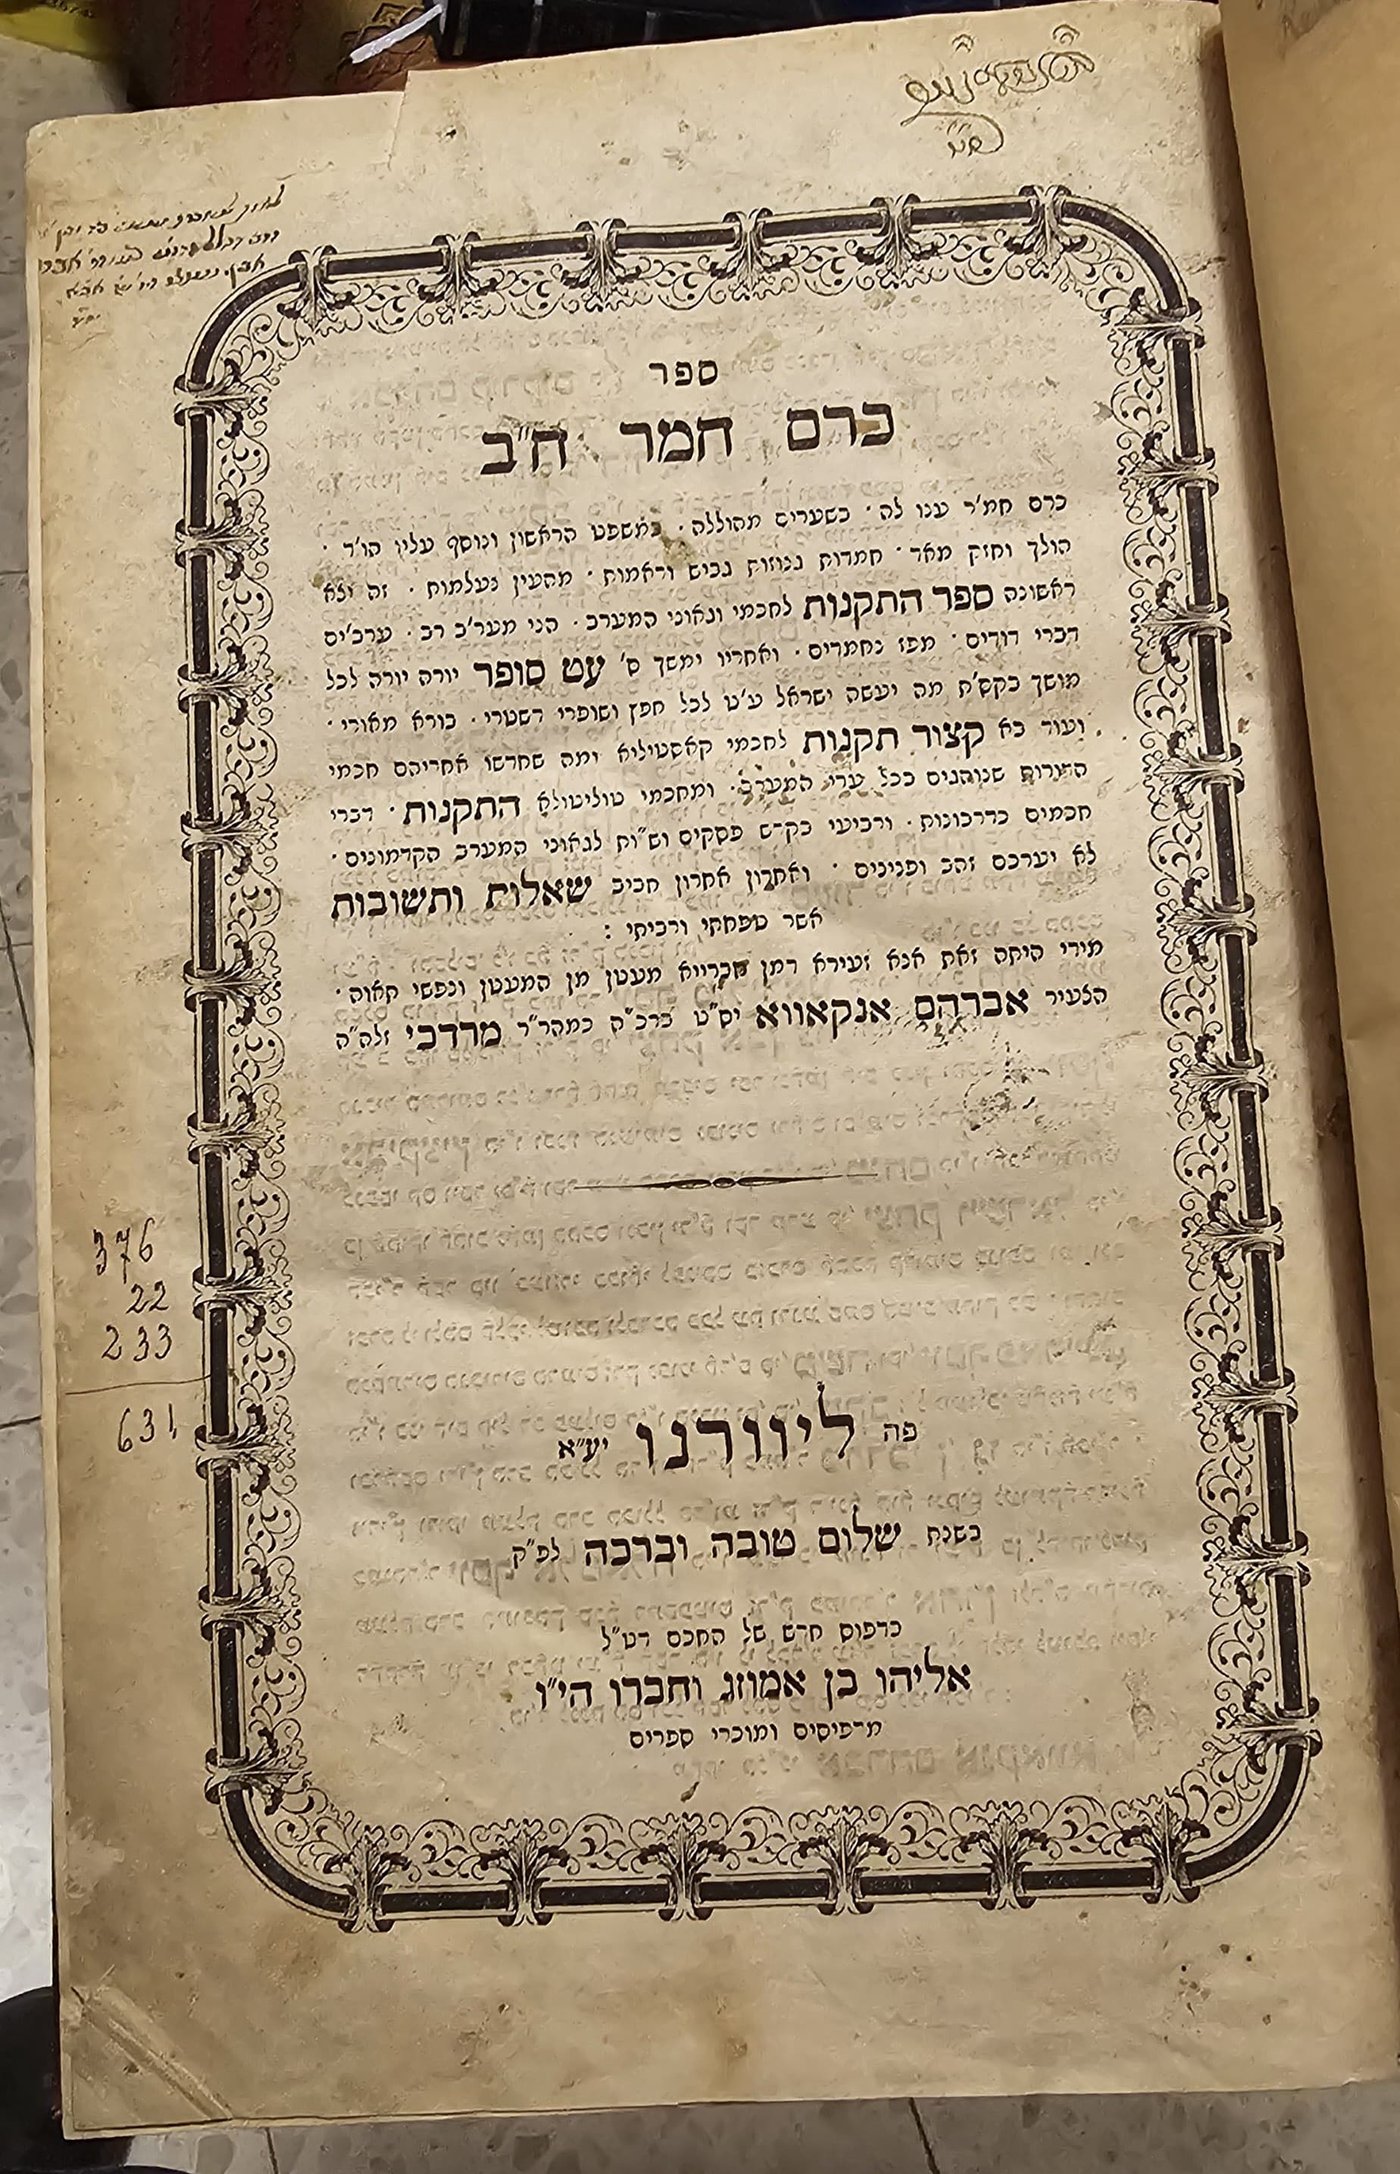 ספר
כרם חמר ח"ב
כרם חמ'ר ענו לה · בשערים מהוללה · כמשפט הראשון ונוסף עליו הו'ד ·
הולך וחזק מאד · חמדות גנוזות גביש וראמות · מהעין נעלמות · זה יצא
ראשונה ספר התקנות לחכמי וגאוני המערב · הני מער'ב רב · ערב'ים
דברי דודים · מפז נחמדים · ואחריו ימשך ס' עט סופר יורה יורה לכל
מושך בקס'ת מה יעשה ישראל ע'ט לכל חפץ ושופרי דשטרי · בורא מאורי ·
ועוד בא קצור תקנות לחכמי קאסטיליא ומה שחדשו אחריהם חכמי
הדורות שנוהגים בכל ערי המערב · ומחכמי טוליטולא התקנות · דברי
חכמים כדרבונות · ורביעי בק"ש פסקים וש"ות לגאוני המערב הקדמונים ·
לא יערכם זהב ופנינים · ואחרון אחרון חביב שאלות ותשובות
אשר טפחתי ורביתי :
מידי היתה זאת אנא זעירא דמן חברייא מעטן מן המעטן ונפשי תאוה ·
הצעיר אברהם אנקאווא יס"ט ברכ"ה כמהר"ר מרדכי זלה"ה
פה ליוורנו יע"א
בשנת שלום טובה וברכה לפ"ק
בדפוס חדש של החכם רט"ל
אליהו בן אמוזג וחברו הי"ו
מדפיסים ומוכרי ספרים
376
22
233
631